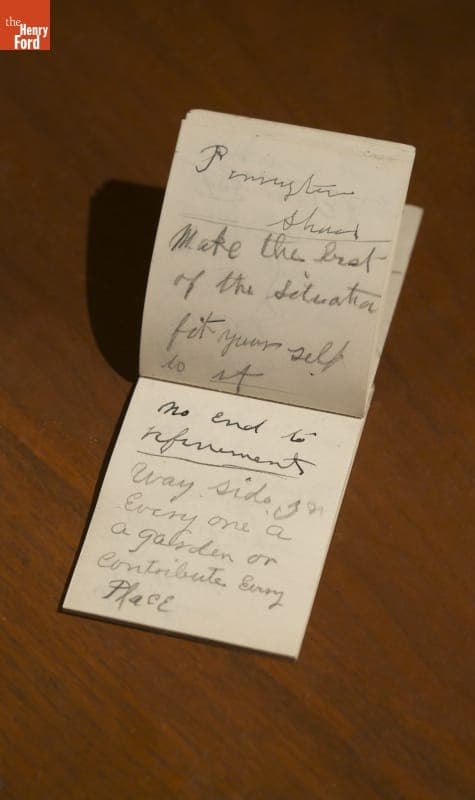 the
Henry
Ford
Make the best
of the situation
fit your self
to it
no end to
refinements
Way side In
Every one a
a garden or
contribute Evry
Place